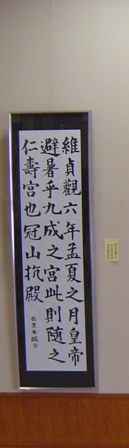 維貞觀六年孟夏之月皇帝
避暑乎九成之宮此則隨之
仁壽宮也冠山抗殿